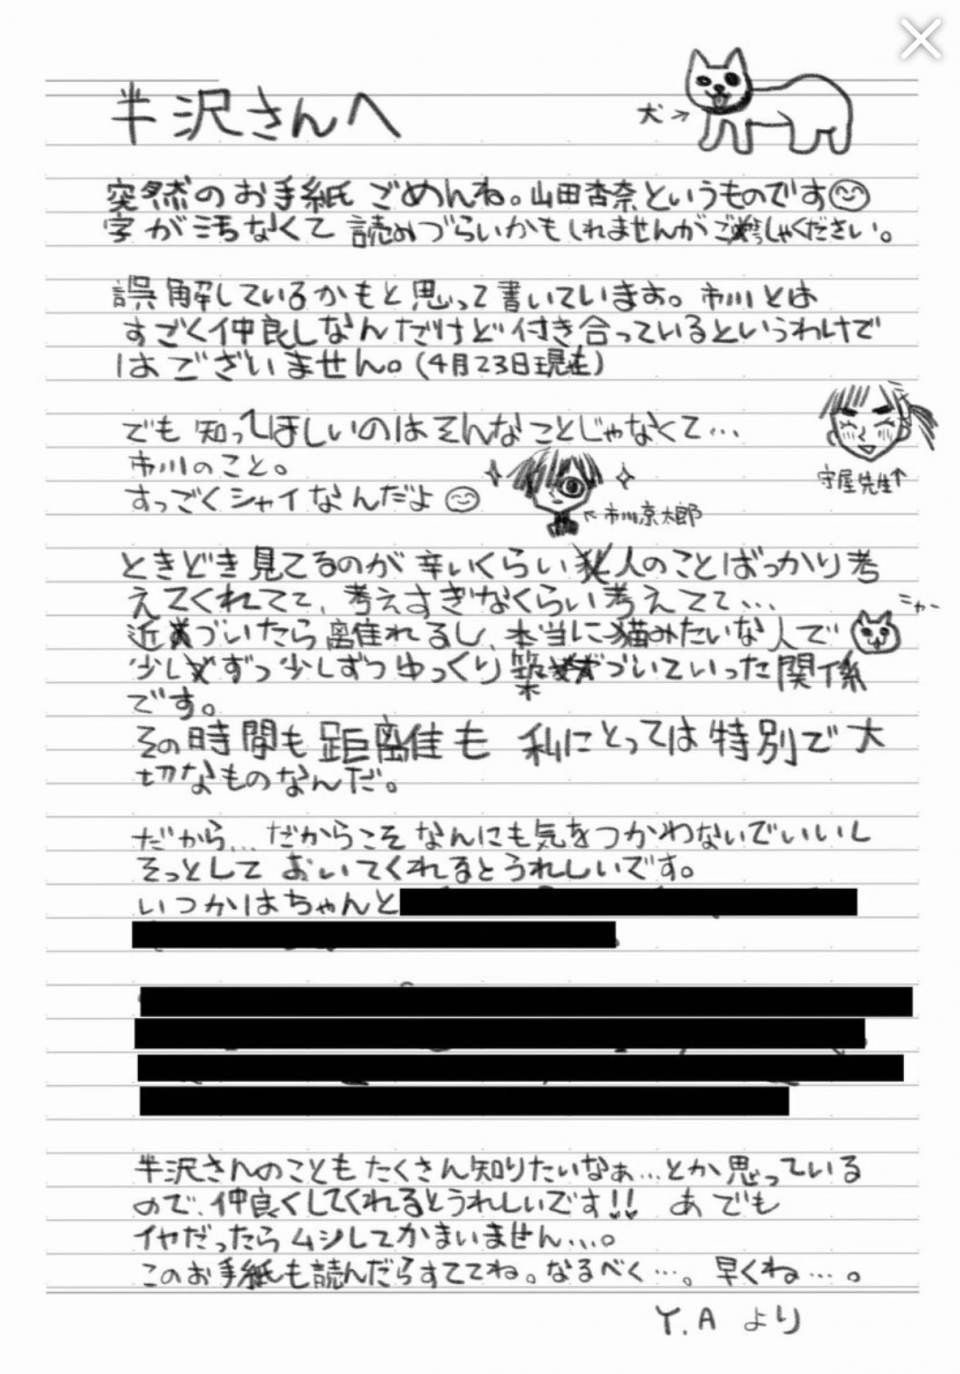 半沢さんへ
犬→
突然のお手紙ごめんね。山田杏奈というものです
字が汚なくて読みづらいかもしれませんがご容赦ください。
誤解しているかもと思って書いています。市川とは
すごく仲良しなんだけど付き合っているというわけで
はございません。(4月23日現在)
でも知ってほしいのはそんなことじゃなくて…
市川のこと。
すっごくシャイなんだよ
←市川京太郎
守屋先生↑
ときどき見てるのが辛いくらい人のことばっかり考
えてくれてて、考えすぎなくらい考えてて…
近づいたら離れるし、本当に猫みたいな人で
ニャー
少しずつ少しずつゆっくり築づいていった関係
です。
その時間も距離も私にとっては特別で大
切なものなんだ。
だから…だからこそなんにも気をつかわないでいいし
そっとしておいてくれるとうれしいです。
いつかはちゃんと
半沢さんのこともたくさん知りたいなぁ…とか思っている
ので、仲良くしてくれるとうれしいです!! あ でも
イヤだったらムシしてかまいません…。
このお手紙も読んだらすててね。なるべく…。早くね…。
Y.A より